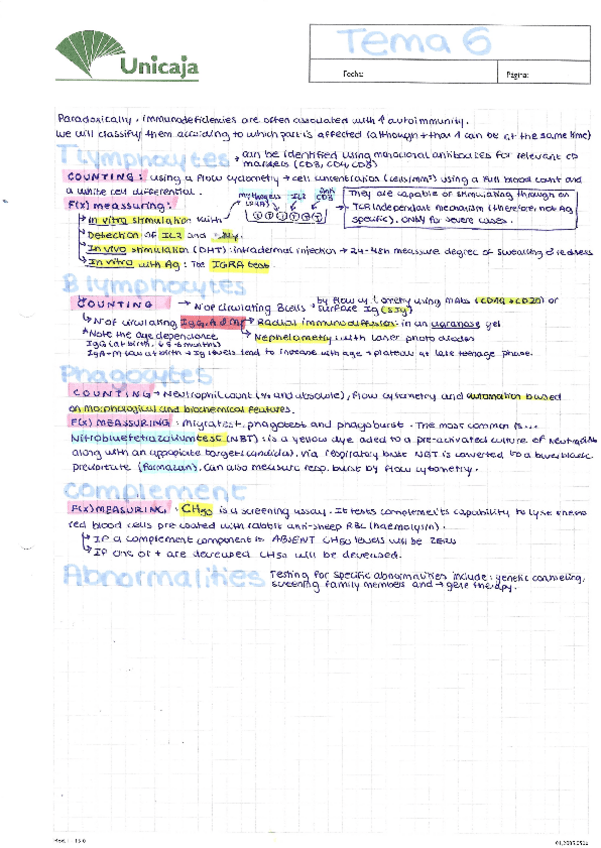 Unicaja
Tema 6
Fecha:
Página:
Paradoxically, immunodeficiencies are often associated with ↑ autoimmunity.
We will classify them according to which part is affected (although + than 1 can be at the same time)
T lymphocytes → can be identified using monoclonal antibodies for relevant CD
markers (CD3, CD4, CD8)
COUNTING: using a flow cytometry → cell concentration (cells/mm³) using a full blood count and
a white cell differential.
mytogens IL2 anti CD3
F(x) meassuring:
They are capable of stimulating through an
TCR independent mechanism (therefore, not Ag
specific). ONLY for severe cases.
→ In vitro stimulation with
→ Detection of IL2 and
→ In vivo stimulation (DHT): intradermal injection → 24-48h measure degree of swealling & redness
→ In vitro with Ag: The IGRA test.
B lymphocytes
COUNTING → Nº of circulating B cells → by flow cytometry using mAbs (CD19 + CD20) or
surface Ig (sIg)
→ Nº of circulating IgG, A & M → Radial immunodiffusion in an agarose gel
*Note the age dependance → Nephelometry with laser photo diodes
IgG (at birth, 4-5-6 months)
IgA-M low at birth → Ig levels tend to increase with age → plateau at late teenage phase.
Phagocytes
COUNTING → Neutrophil count (% and absolute), flow cytometry and automation based
on morphological and biochemical features.
F(x) MEASURING: migratest, phagotest and phagoburst. The most common is...
Nitrobluetetrazolium test (NBT): is a yellow dye added to a pre-activated culture of neutrophils
along with an appropiate target (candida). Via respiratory burst NBT is converted to a blue/black
precipitate (formazan). Can also measure resp. burst by flow cytometry.
Complement
F(x) MEASURING: CH50 is a screening assay. It tests complement's capability to lyse
red blood cells pre coated with rabbit anti-sheep RBC (haemolysin).
→ If a complement component is ABSENT CH50 levels will be ZERO
→ If one or + are decreased CH50 will be decreased.
Abnormalities Testing for specific abnormalities include: genetic counseling,
screening family members and → gene therapy.